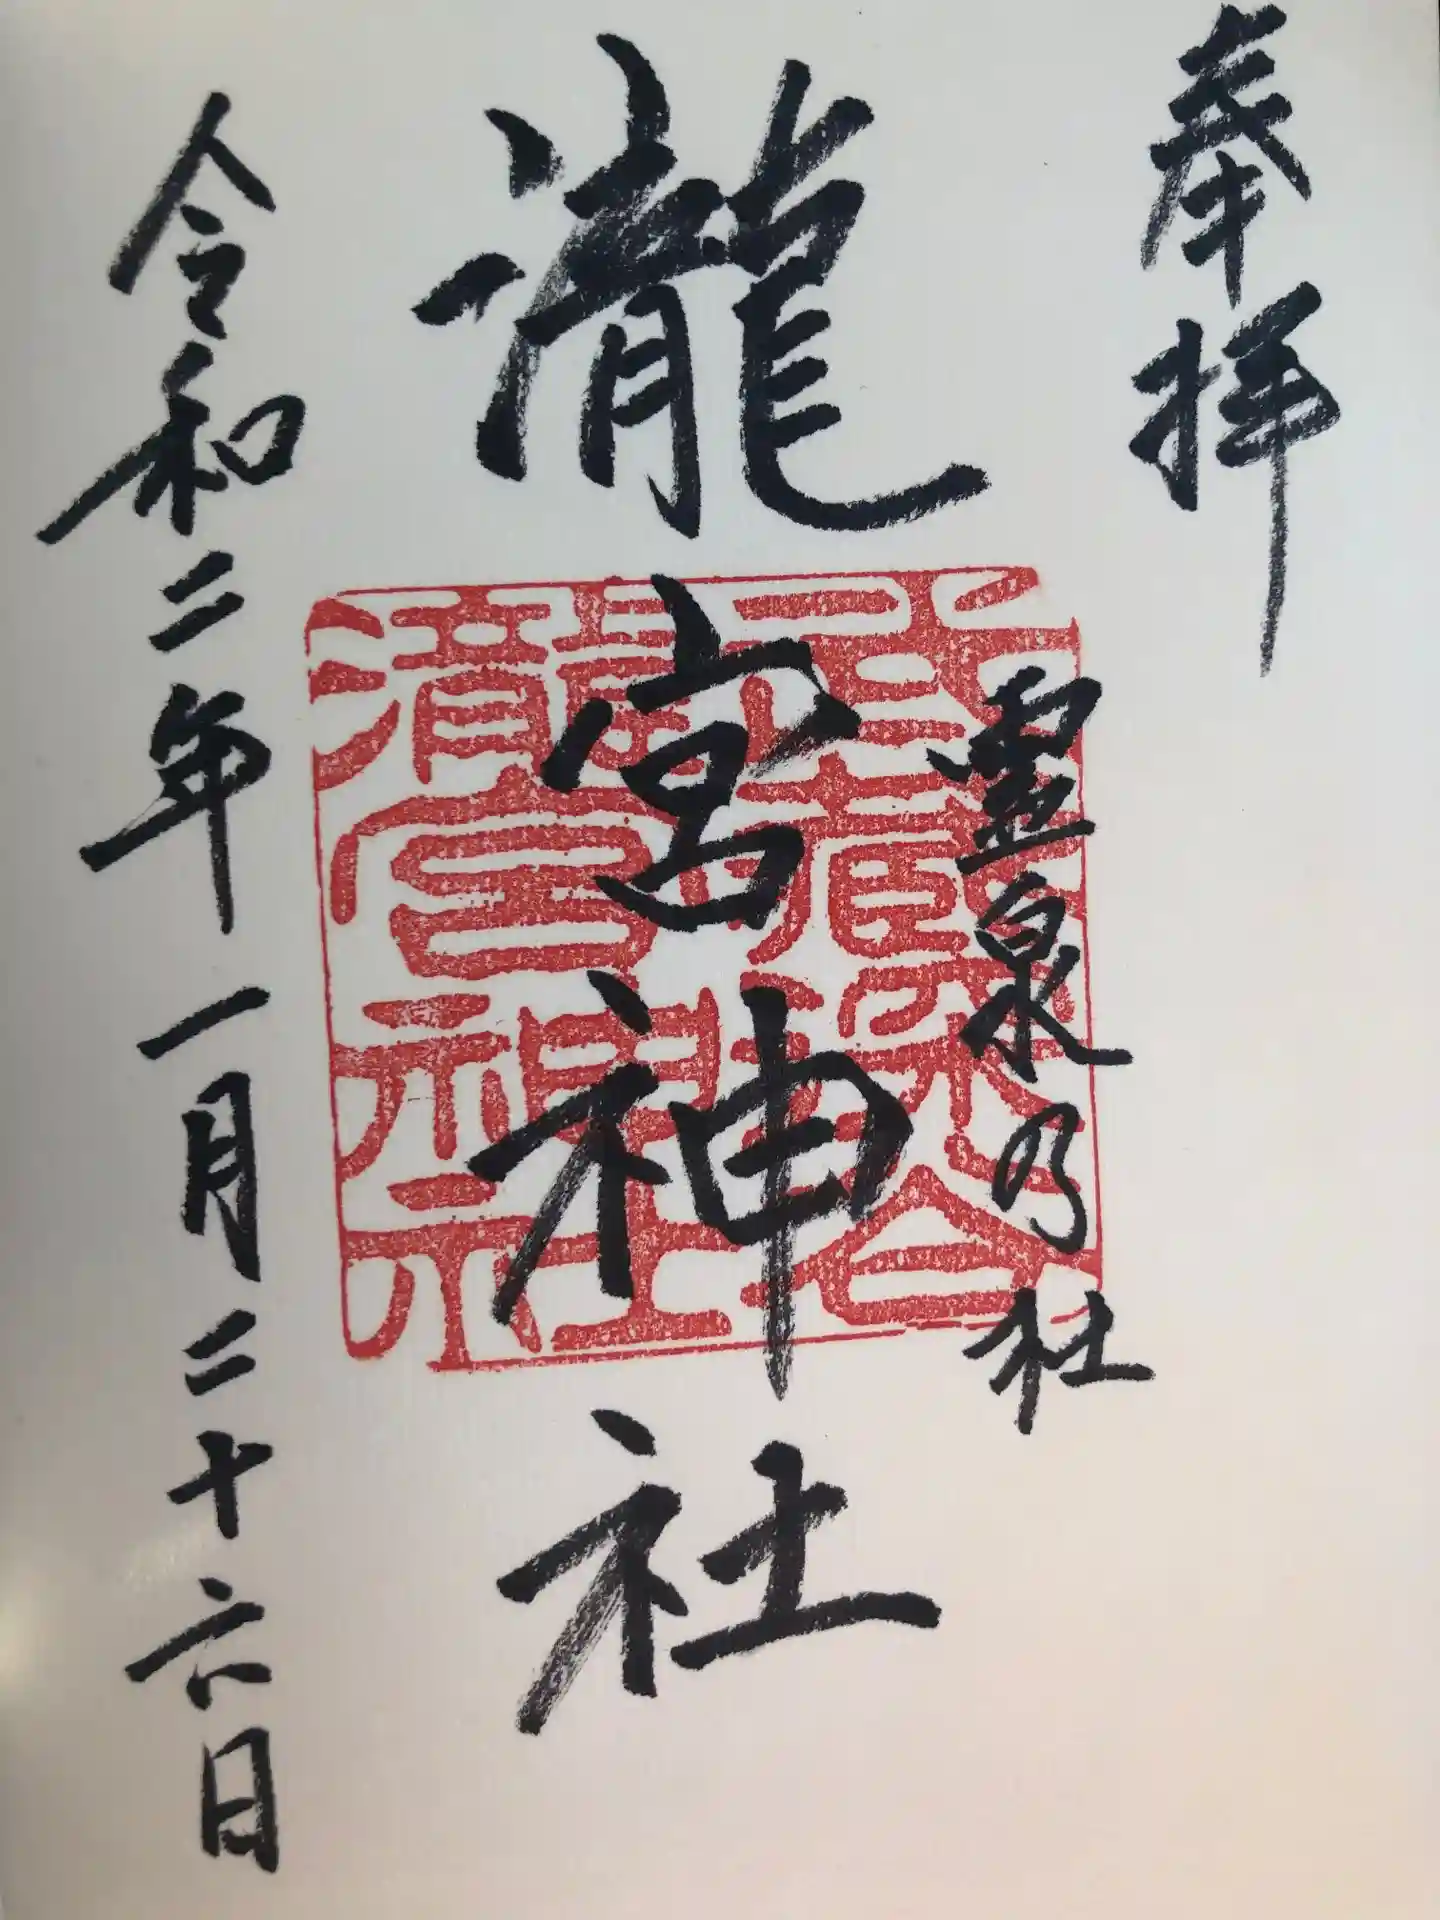 奉拝
霊泉乃社
瀧宮神社
令和二年一月二十六日
瀧宮神社